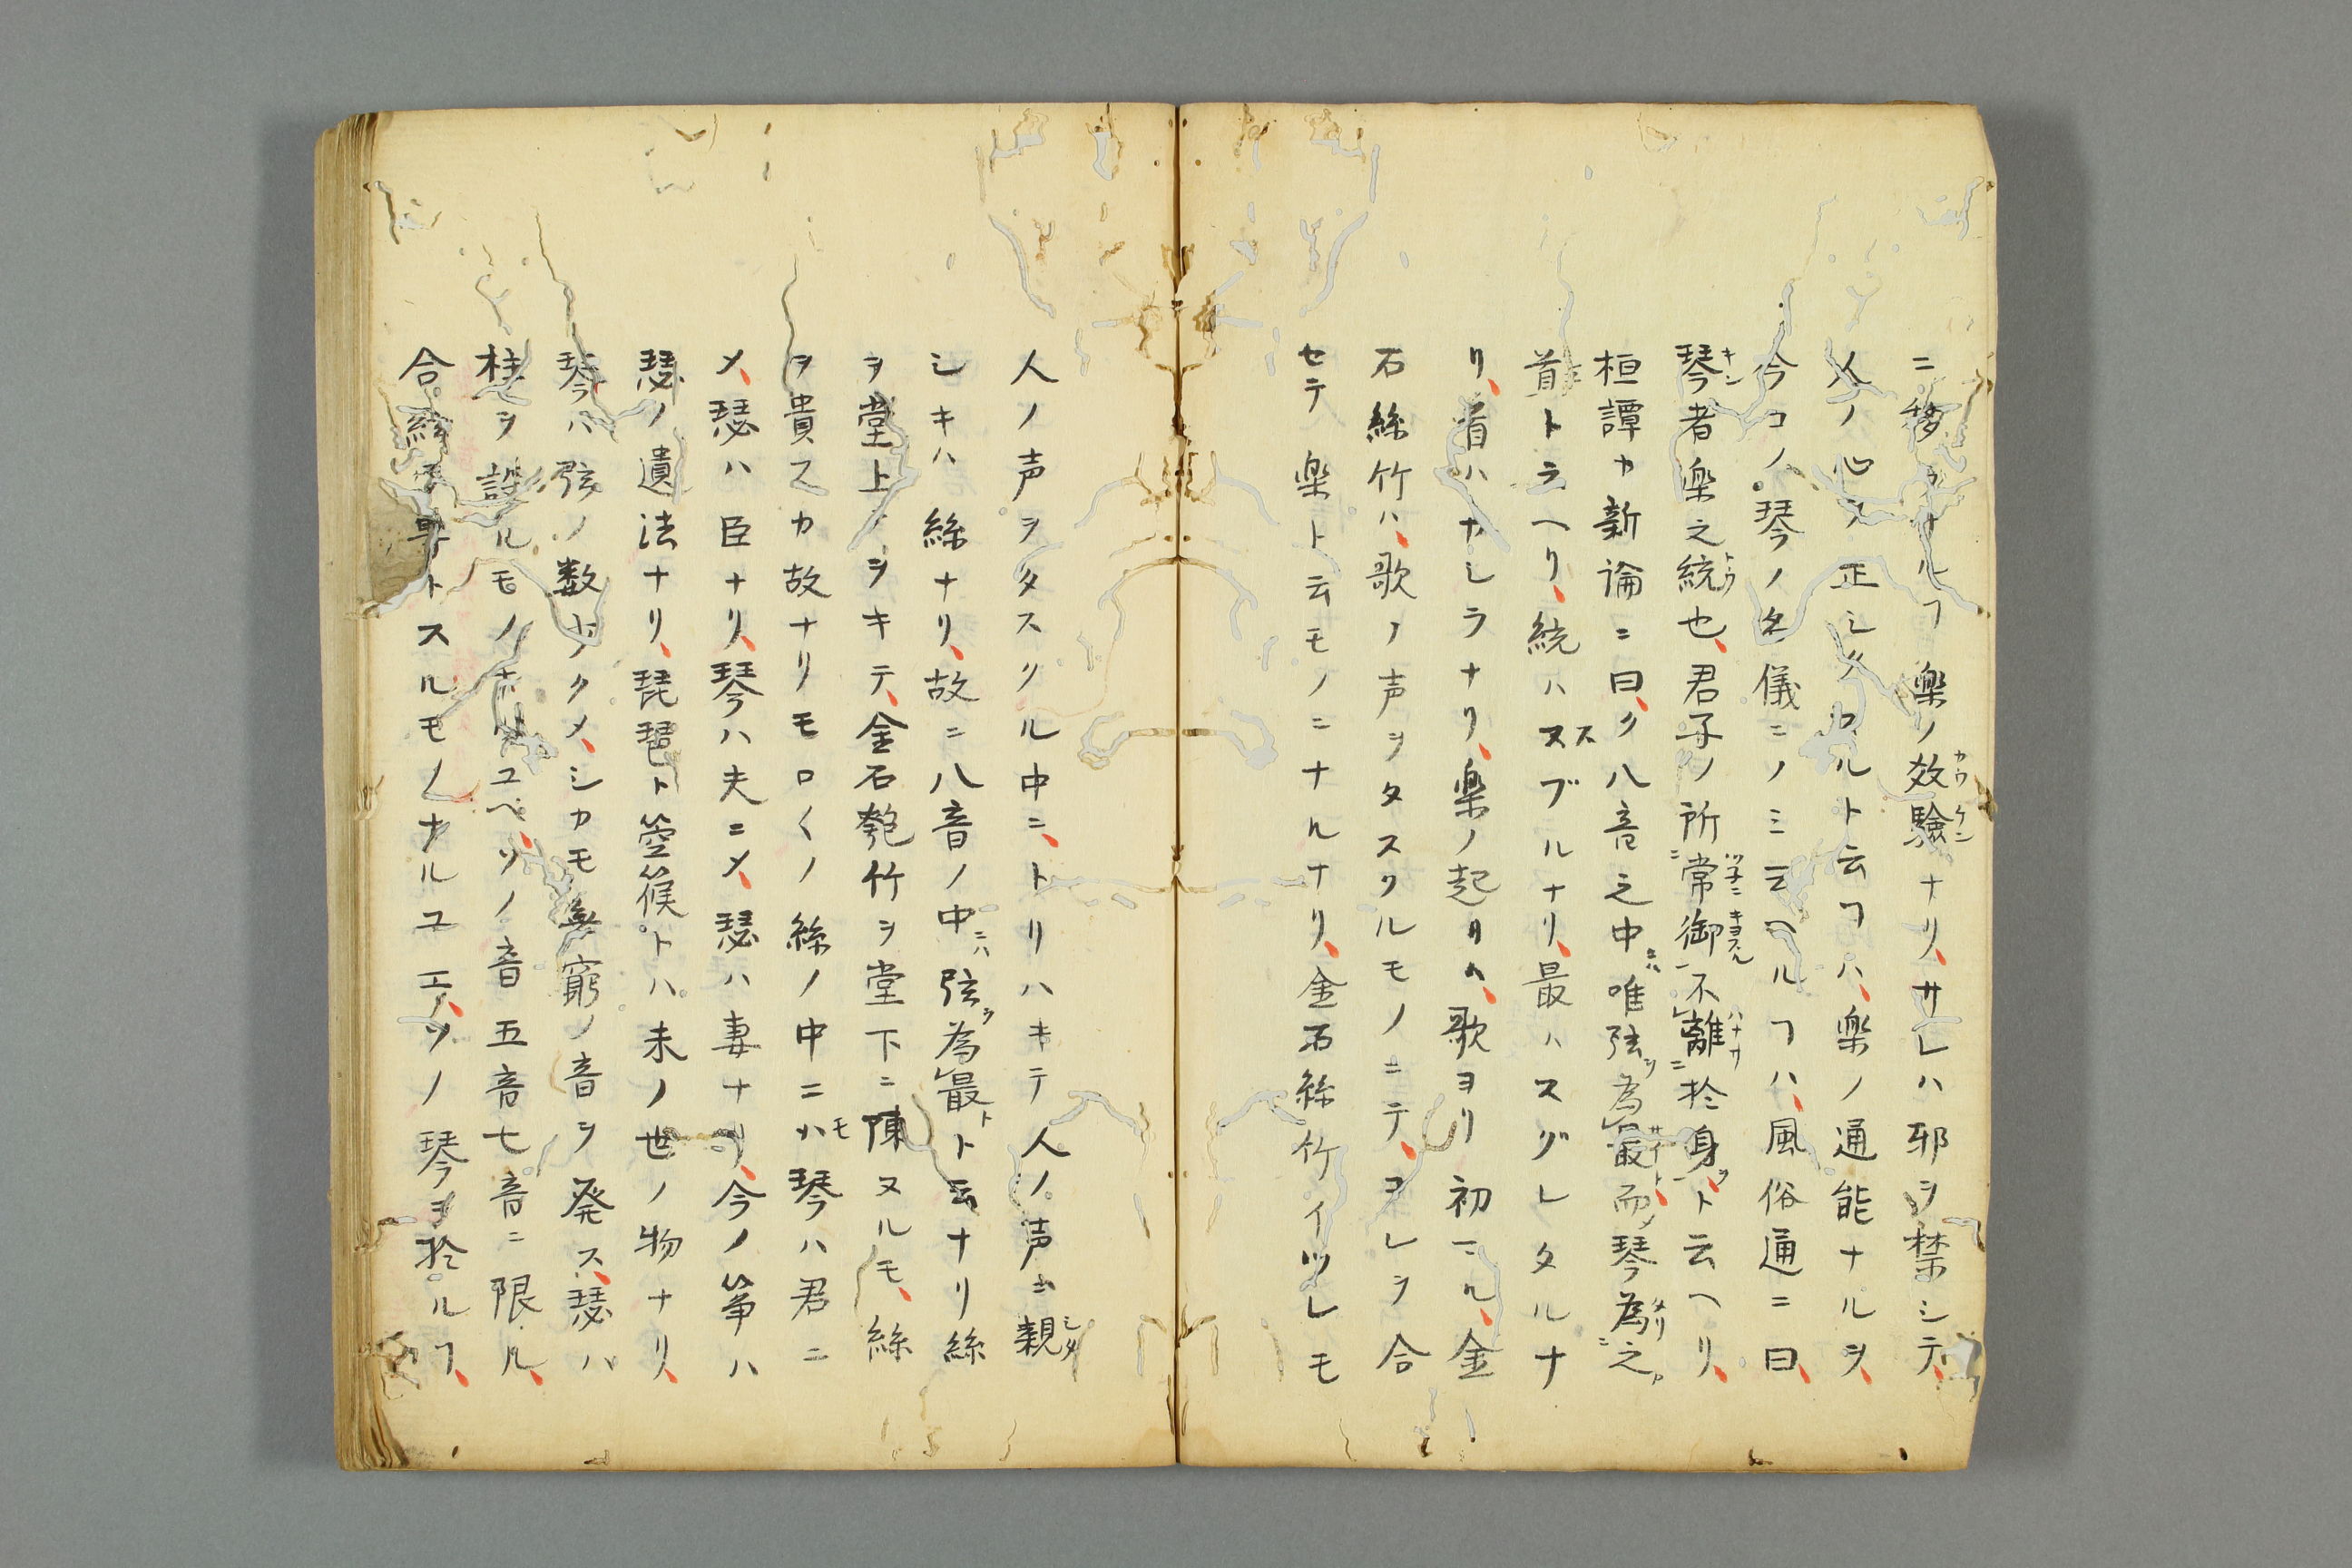 ニ移ルナルヿ楽ノ效驗ナリ、サレハ邪ヲ禁シテ、
人ノ心ヲ正シクスルト云ヿハ、楽ノ通能ナルヲ、
今コノ琴ノ名儀ニノミ云ヘルヿハ、風俗通ニ曰、
琴者楽之統也、君子ノ所常御不離於身ト云ヘリ、
桓譚カ新論ニ曰、ク八音之中唯弦為最而琴為之
首ト云ヘリ、統ハスブルナリ、最ハスグレタルナ
リ、首ハカシラナリ、楽ノ起リハ、歌ヨリ初マル、金
石絲竹ハ、歌ノ声ヲタスクルモノニテ、コレヲ合
セテ楽ト云モノニナルナリ、金石絲竹イツレモ
人ノ声ヲタスクル中ニ、トリハキテ人ノ声ニ親
シキハ絲ナリ、故ニ八音ノ中弦為最ト云ナリ絲
ヲ堂上ニヲキテ、金石匏竹ヲ堂下ニ陳ヌルモ、絲
ヲ貴スカ故ナリモロ〱ノ絲ノ中ニハ琴ハ君ニ
メ、瑟ハ臣ナリ、琴ハ夫ニメ、瑟ハ妻ナリ、今ノ箏ハ
瑟ノ遺法ナリ、琵琶ト箜篌トハ末ノ世ノ物ナリ、
琴ハ弦ノ数少ノクメ、シカモ無窮ノ音ヲ発ス、瑟ハ
柱ヲ設ルモノナルユヘ、ソノ音五音七音ニ限ル、
合絃ヲ専トスルモノナルユエ、ソノ琴ヲ於ルヿ、